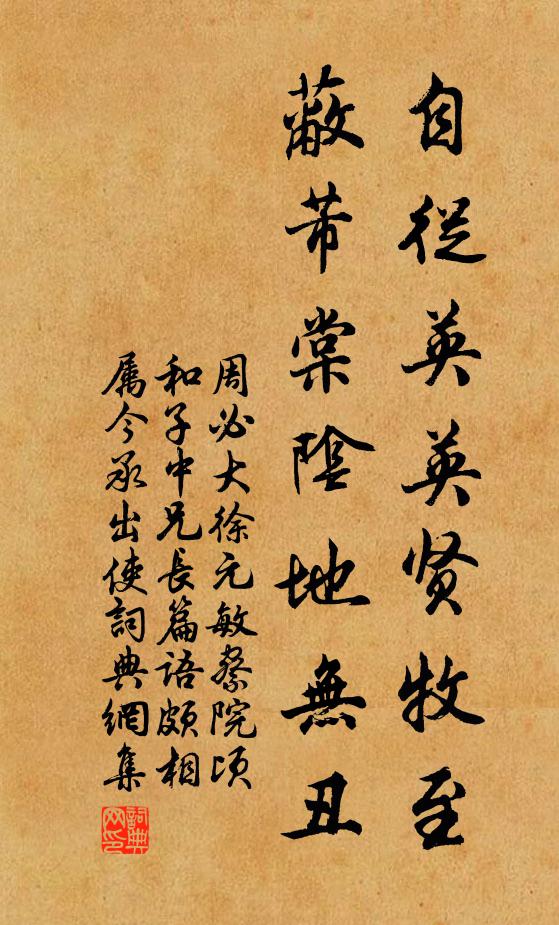 自從英英贤牧至
蔽芾棠陰地無丑
周必大徐元敏察院頃
和子中兄長篇语頗相
属今承出使詞典網集
詞典
网印